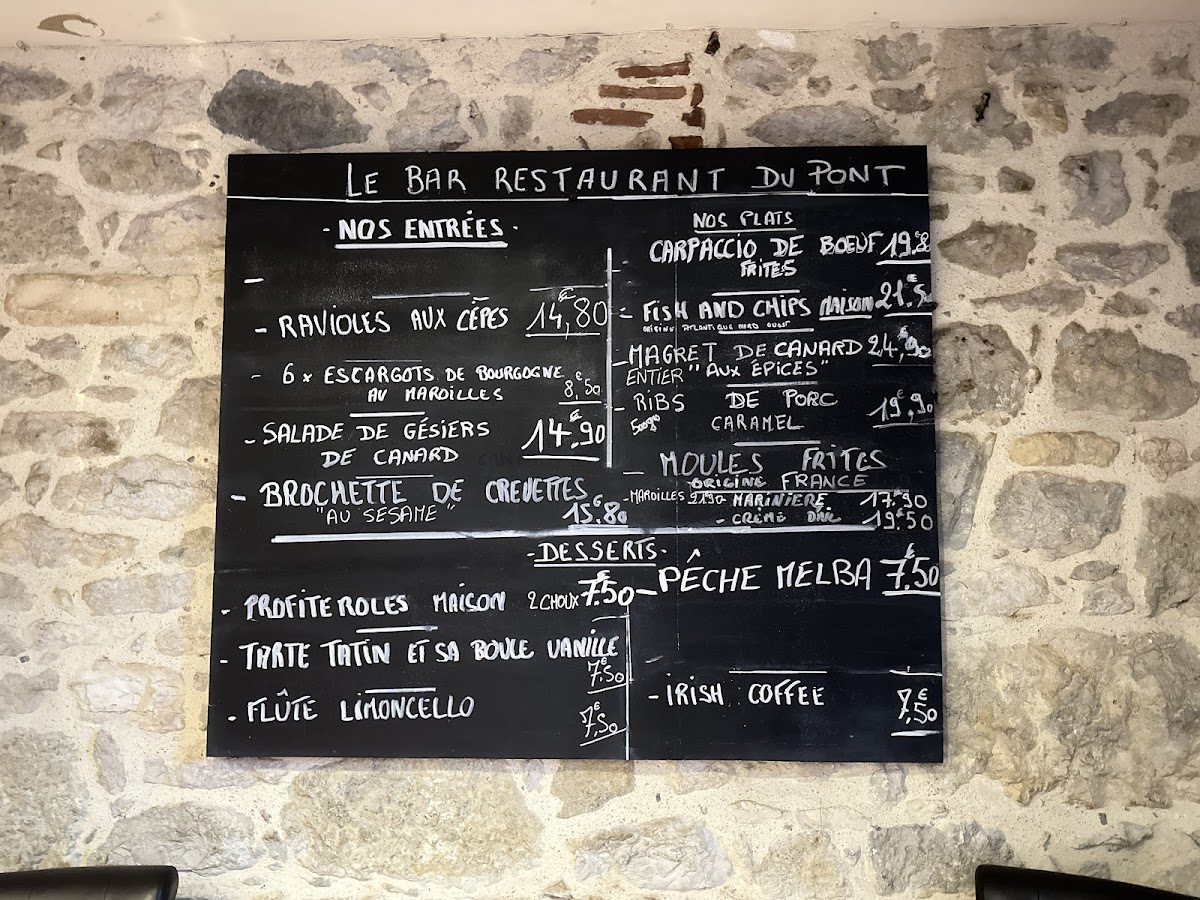 LE BAR RESTAURANT DU PONT
- NOS ENTRÉES -
- RAVIOLES AUX CÊPES 14,80€
- 6 x ESCARGOTS DE BOURGOGNE
AU MAROILLES 8€,50
- SALADE DE GÉSIERS 14€.90
DE CANARD
- BROCHETTE DE CREVETTES
"AU SESAME" 15€.80
NOS PLATS
CARPACCIO DE BOEUF 19€.8
FRITES
- FISH AND CHIPS MAISON 21€.50
ATLANTIQUE NORD OUEST
- MAGRET DE CANARD 24€,90
ENTIER "AUX ÉPICES"
- RIBS DE PORC 19€,90
CARAMEL
- MOULES FRITES
ORIGINE FRANCE
- MAROILLES 21€90 - MARINIERE 17€.90
- CRÈME D'AIL 19€.50
- DESSERTS -
- PROFITEROLES MAISON 2 CHOUX 7€.50
- TARTE TATIN ET SA BOULE VANILLE
7€.50
- FLÛTE LIMONCELLO 7€,50
- PÊCHE MELBA 7€.50
- IRISH COFFEE 7€,50